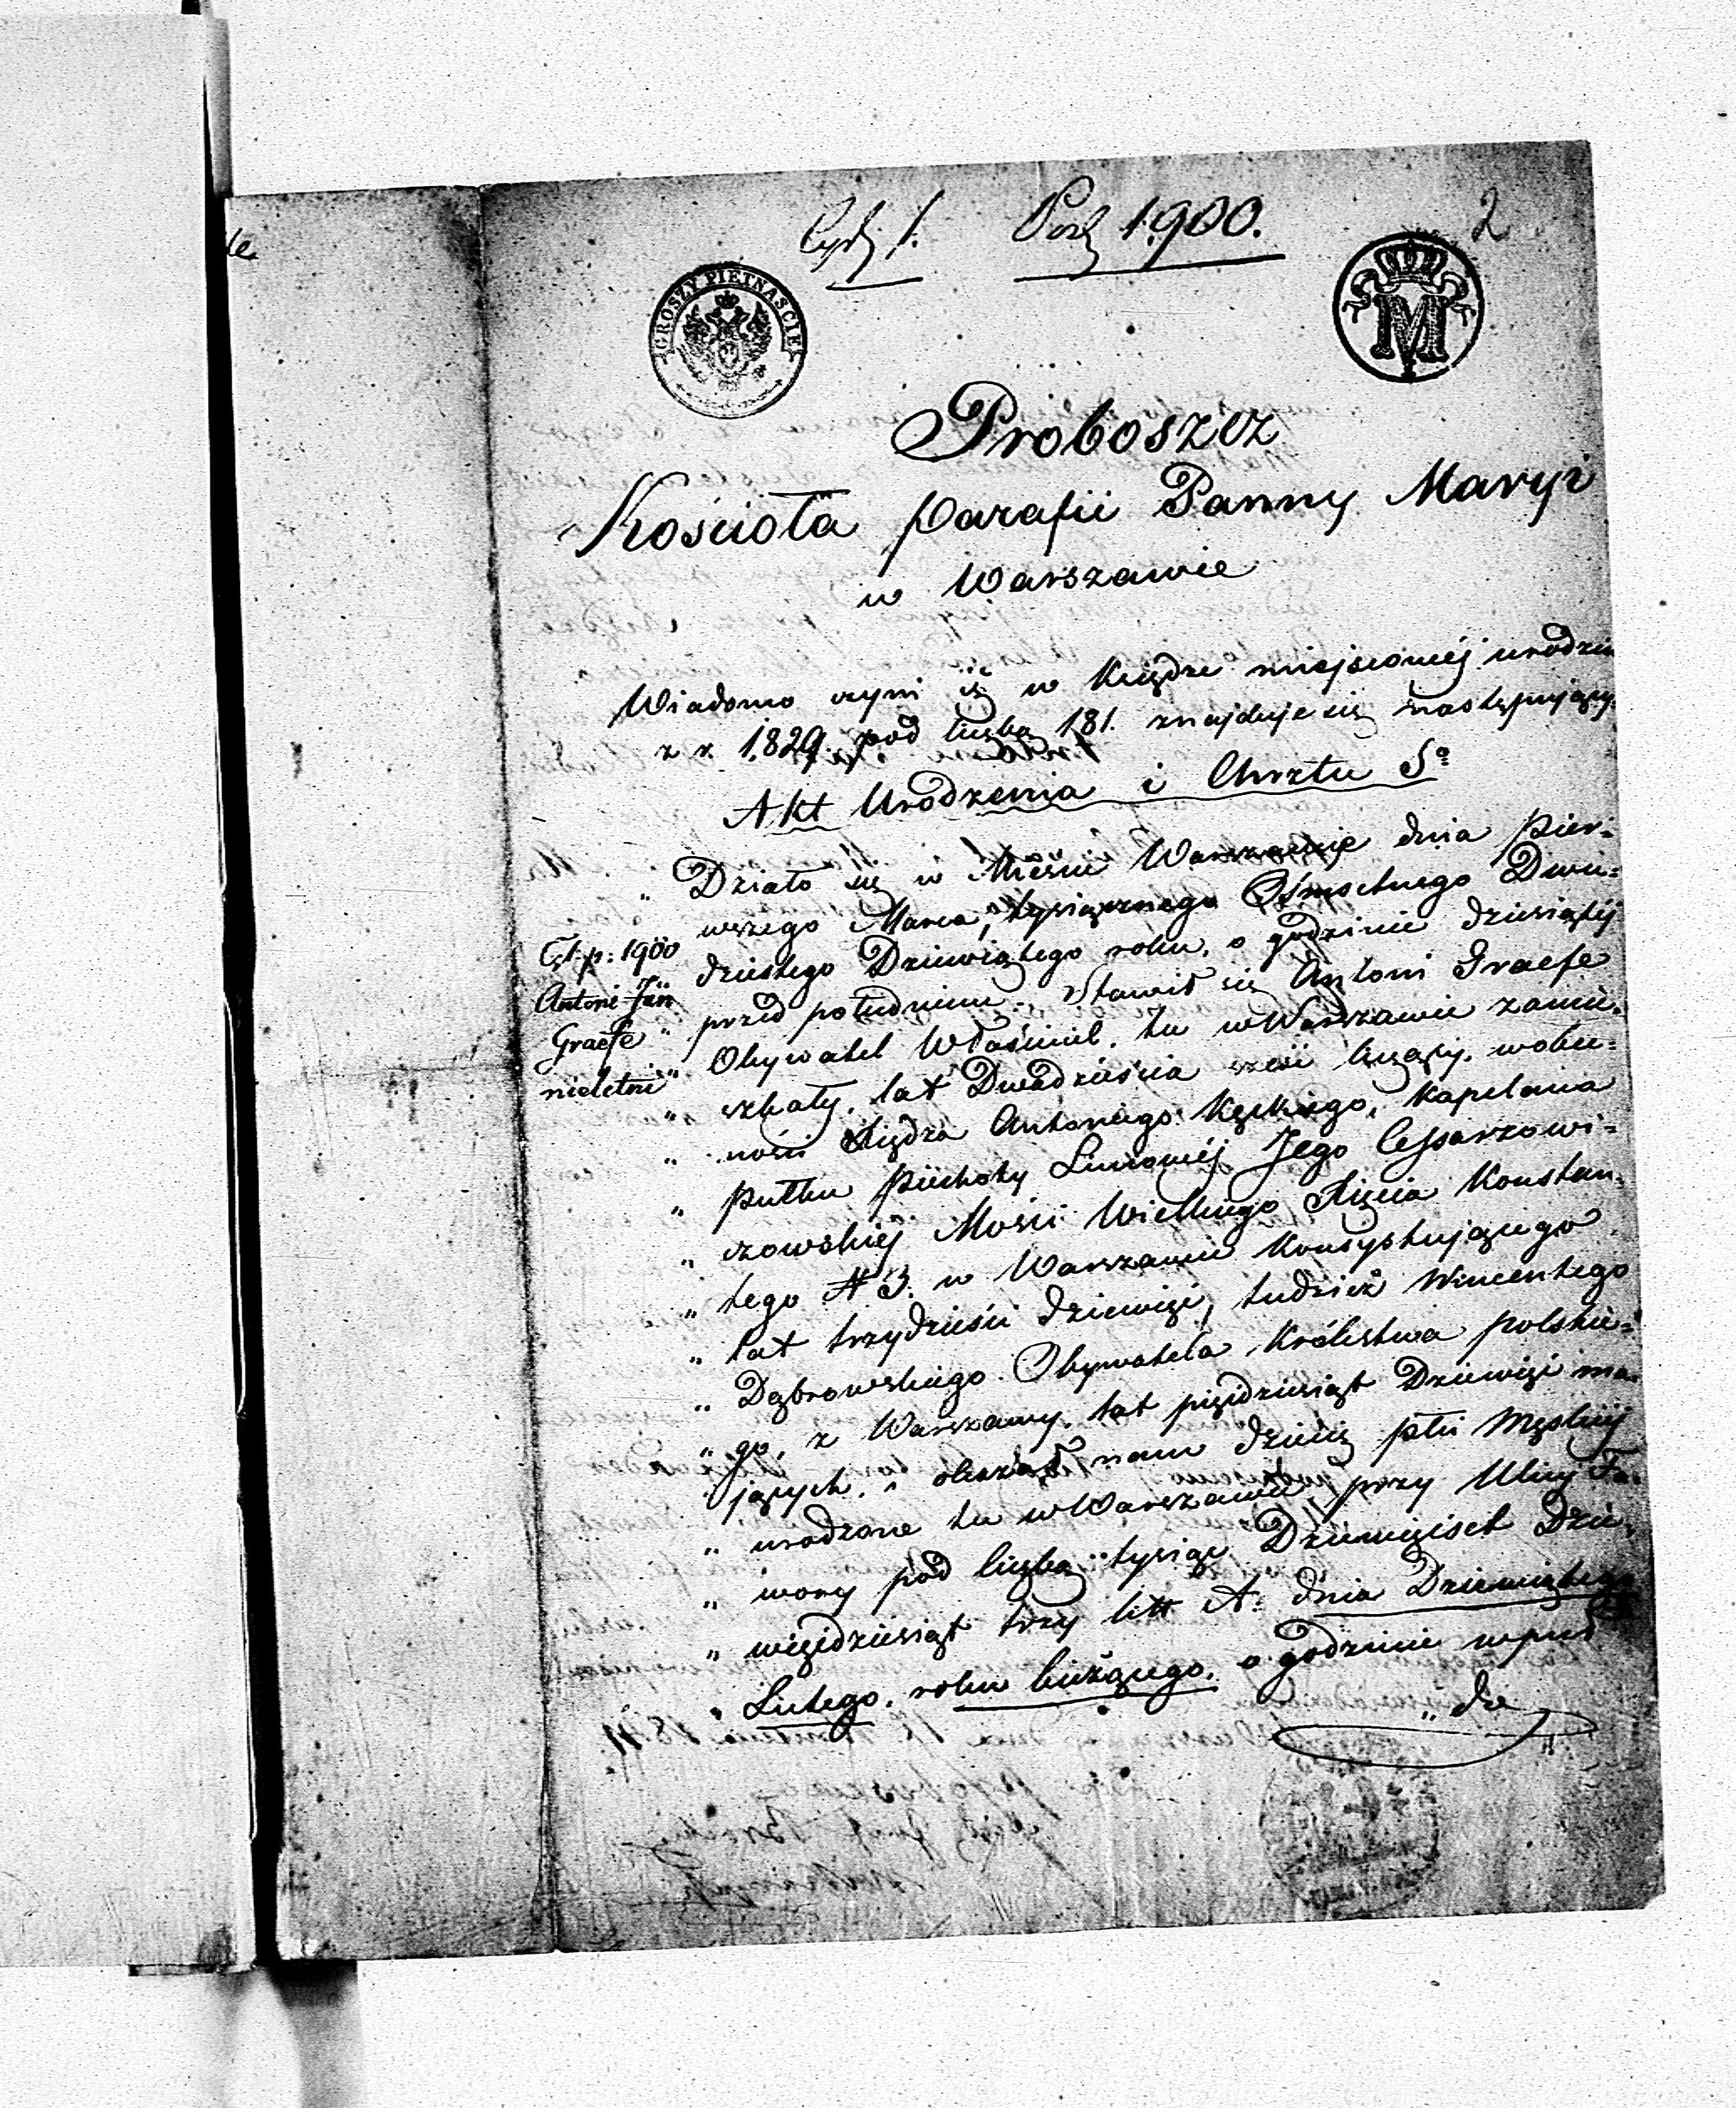 Cyrk. 1. Posz. 1900. 2
GROSZY PIETNASCIE
M
Proboszcz
Kościoła parafii Panny Maryi
w Warszawie
Wiadomo czyni iż w Księdze miejscowéj urodzin
z r. 1829. pod liczbą 181. znajduje się następujący.
Akt Urodzenia i Chrztu Sº
„ Działo się w Mieście Warszawie dnia pier=
wszego Marca, tysiącznego Ośmsetnego Dwu=
dziestego Dziewiątego roku, o godzinie dziesiątéj
„ przed południem. Stawił się Antoni Graefe
„ Obywatel Właściciel. tu w Warszawie zamie=
„ szkały, lat Dwadzieścia sześć liczący, wobec=
„ ności Xiędza Antoniego Kęckiego, Kapelana
„ Pułku Piechoty Liniowéj Jego Cesarzowi=
„ czowskiéj Mości Wielkiego Xięcia Konstan=
„ tego N 3. w Warszawie Konsystującego
„ lat trzydzieści dziewięć, tudzież Wincentego
„ Dąbrowskiego Obywatela Królestwa polskie=
„ go, z Warszawy, lat pięćdziesiąt Dziewięć ma=
„ jących, i okazał nam dziecię płci Męskiéj
„ urodzone tu w Warszawie przy Ulicy Fa=
„ wory pod liczbą tysiąc Dziewięćset Dzie=
„ więćdziesiąt trzy litt A. dnia Dziewiątego
„ Lutego. roku bieżącego. o godzinie wpuł
„ do
p: 1900
Antoni Jan
Graefe
nieletni